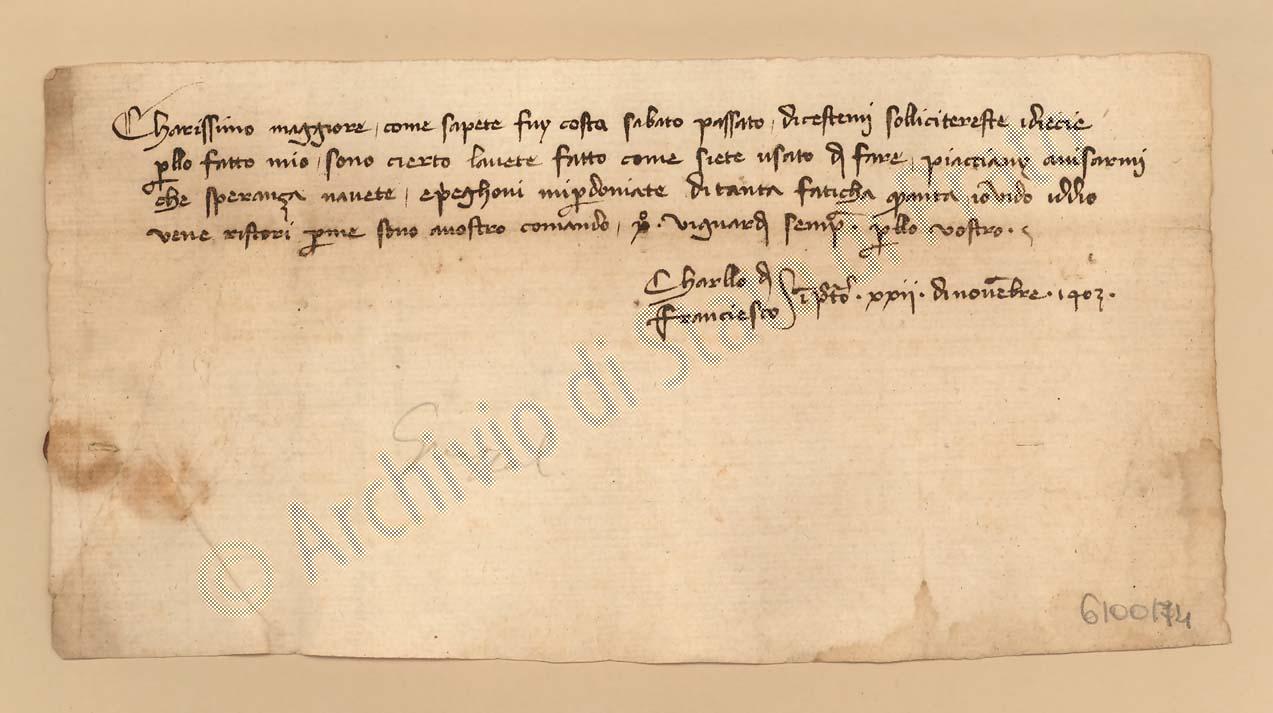 Charissimo maggiore, come sapete fuy costa sabato passato, dicestemi sollicitereste idiecie
p̲llo fatto mio, sono cierto lavete fatto come siete usato d fare, piacciavy avisarmi
che speranza navete, epreghovi mip̲doniate di tanta faticha
vene ristori p̲me sono avostro comando, viguardj semp̲ p̲llo vostro.
Charllo d
Franciesco
xxii. dinove͂bre. 1402.
© Archivio di Stato di Prato
6100174